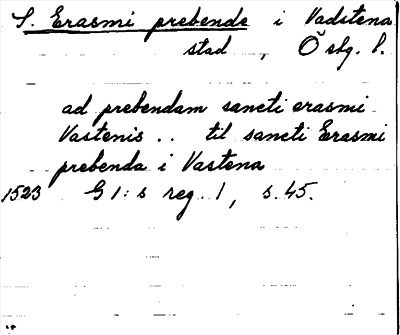 S. Erasmi prebende i Vadstena
stad, Östg. l.
ad prebendam sancti erasmi
Vastenis .. til sancti Erasmi
prebenda i Vastena
1523 G I:s reg. 1, s. 45.